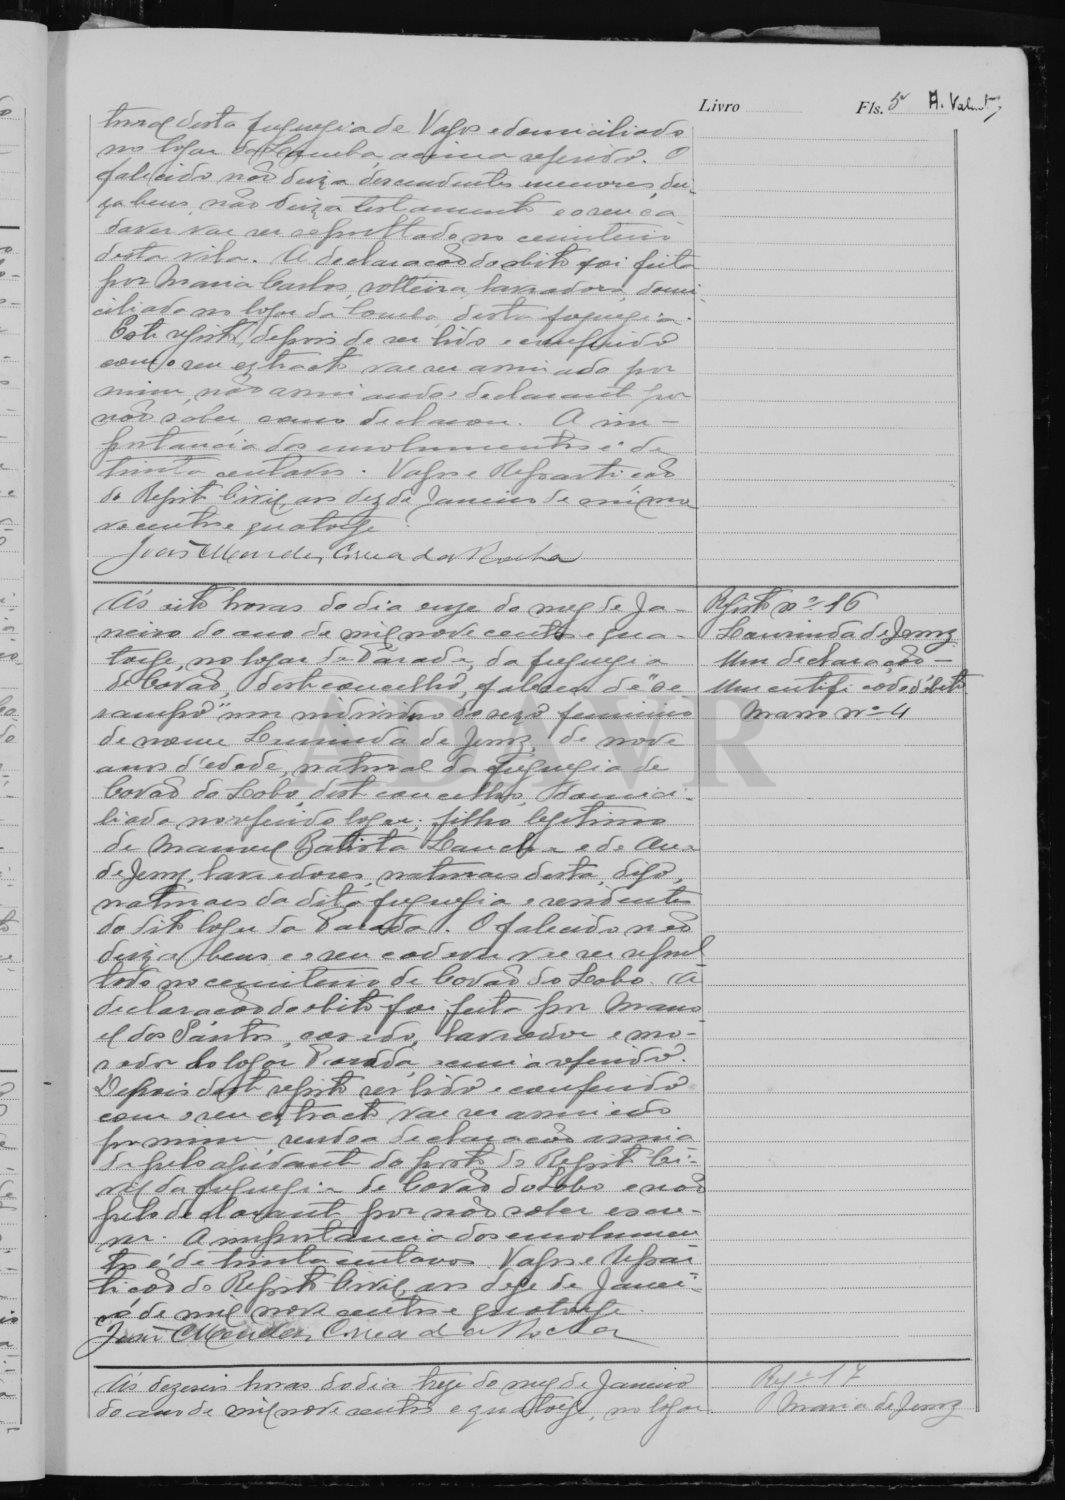 Livro Fls. 5 A. Valente
tural desta freguesia de Vagos e domiciliado
no logar da Lomba, acima referido. O
falecido não deixa descendentes menores, dei-
xa bens, não deixa testamento e o seu ca
daver vae ser sepultado no cemiterio
desta vila. A declaração do obito foi feita
por Maria Carlos, solteira, lavradora, domi-
ciliada no logar da Lomba desta freguesia.
Este registo, depois de ser lido e conferido
com o seu extracto vae ser assinado por
mim, não assinando o declarante por
não saber, como declarou. A im-
portancia dos emolumentos é de
trinta centavos. Vagos e Repartição
do Registo Civil, aos dez de Janeiro de mil no
vecentos e quatorze.
João Mendes Correia da Rocha
Ás oito horas do dia onze do mez de Ja-
neiro do ano de mil nove centos e qua-
torze, no logar da Parada, da freguesia
de Covão, deste concelho, faleceu de "se
rampo" um individuo do sexo feminino
de nome Laurinda de Jesus, de nove
anos d'edade, natural da freguesia de
Covão do Lobo, deste concelho, domici-
liada no referido logar, filho legitimo
de Manuel Batista e de Ana
de Jesus, lavradores, naturaes desta, digo,
naturaes da dita freguesia e residentes
do dito logar da Parada. O falecido não
deixa bens e o seu cadaver vae ser sepul
tado no cemiterio de Covão do Lobo. A
declaração do obito foi feita por Mano
el dos Santos, casado, lavrador e mo-
rador do logar Parada, acima referido.
Depois deste registo ser lido e conferido
com o seu extracto vae ser assinado
por mim, sendo a declaração assina
da pelo ajudante do posto do Registo Ci-
vil da freguesia de Covão do Lobo e não
pelo declarante por não saber escre-
ver. A importancia dos emolumen
tos é de trinta centavos. Vagos e Repar-
tição do Registo Civil, aos doze de Janei-
ro de mil nove centos e quatorze.
João Mendes Correia da Rocha
Registo nº 16
Laurinda de Jesus
Uma declaração —
Um certificado d'obito
Maço nº 4
ADAVR
Ás dezeseis horas do dia treze do mez de Janeiro
do ano de mil nove centos e quatorze, no logar
Regº 17
Maria de Jesus